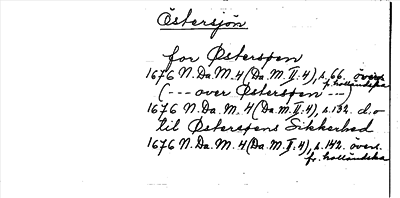 Östersjön
for Østersøen
1676 N. Da. M. 4 (Da. M. II: 4), s. 66. övers.
fr. holländska
(--- over Østersøen ---)
1676 N. Da. M. 4 (Da. M. II: 4), s. 132. d:o
til Østersøens Sikkerhed
1676 N. Da. M. 4 (Da. M. II: 4), s. 142. övers.
fr. holländska